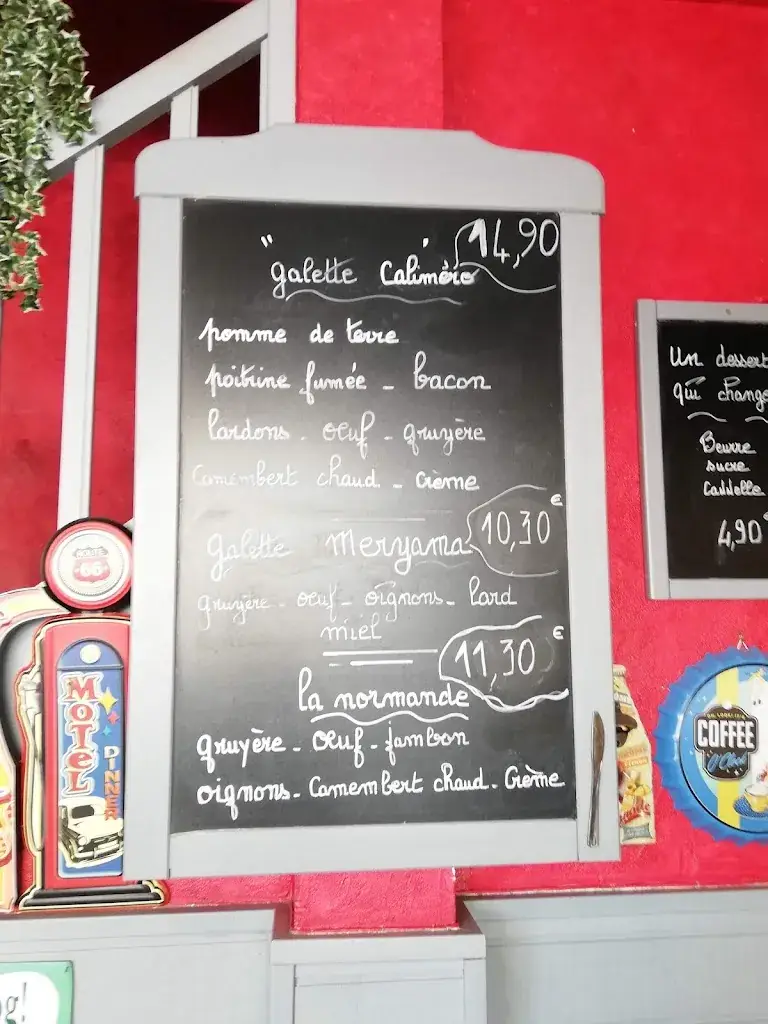 "galette Caliméro" 14,90
pomme de terre
poitrine fumée - bacon
lardons - oeuf - gruyère
Camembert chaud - Crème
galette Meryama 10,30 €
gruyère - oeuf - oignons - lard
miel
11,30 €
la normande
gruyère - oeuf - jambon
oignons - Camembert chaud - Crème
Un dessert
qui change
Beurre
sucre
4,90 €
ROUTE
66
MOTEL
DINNER
COFFEE